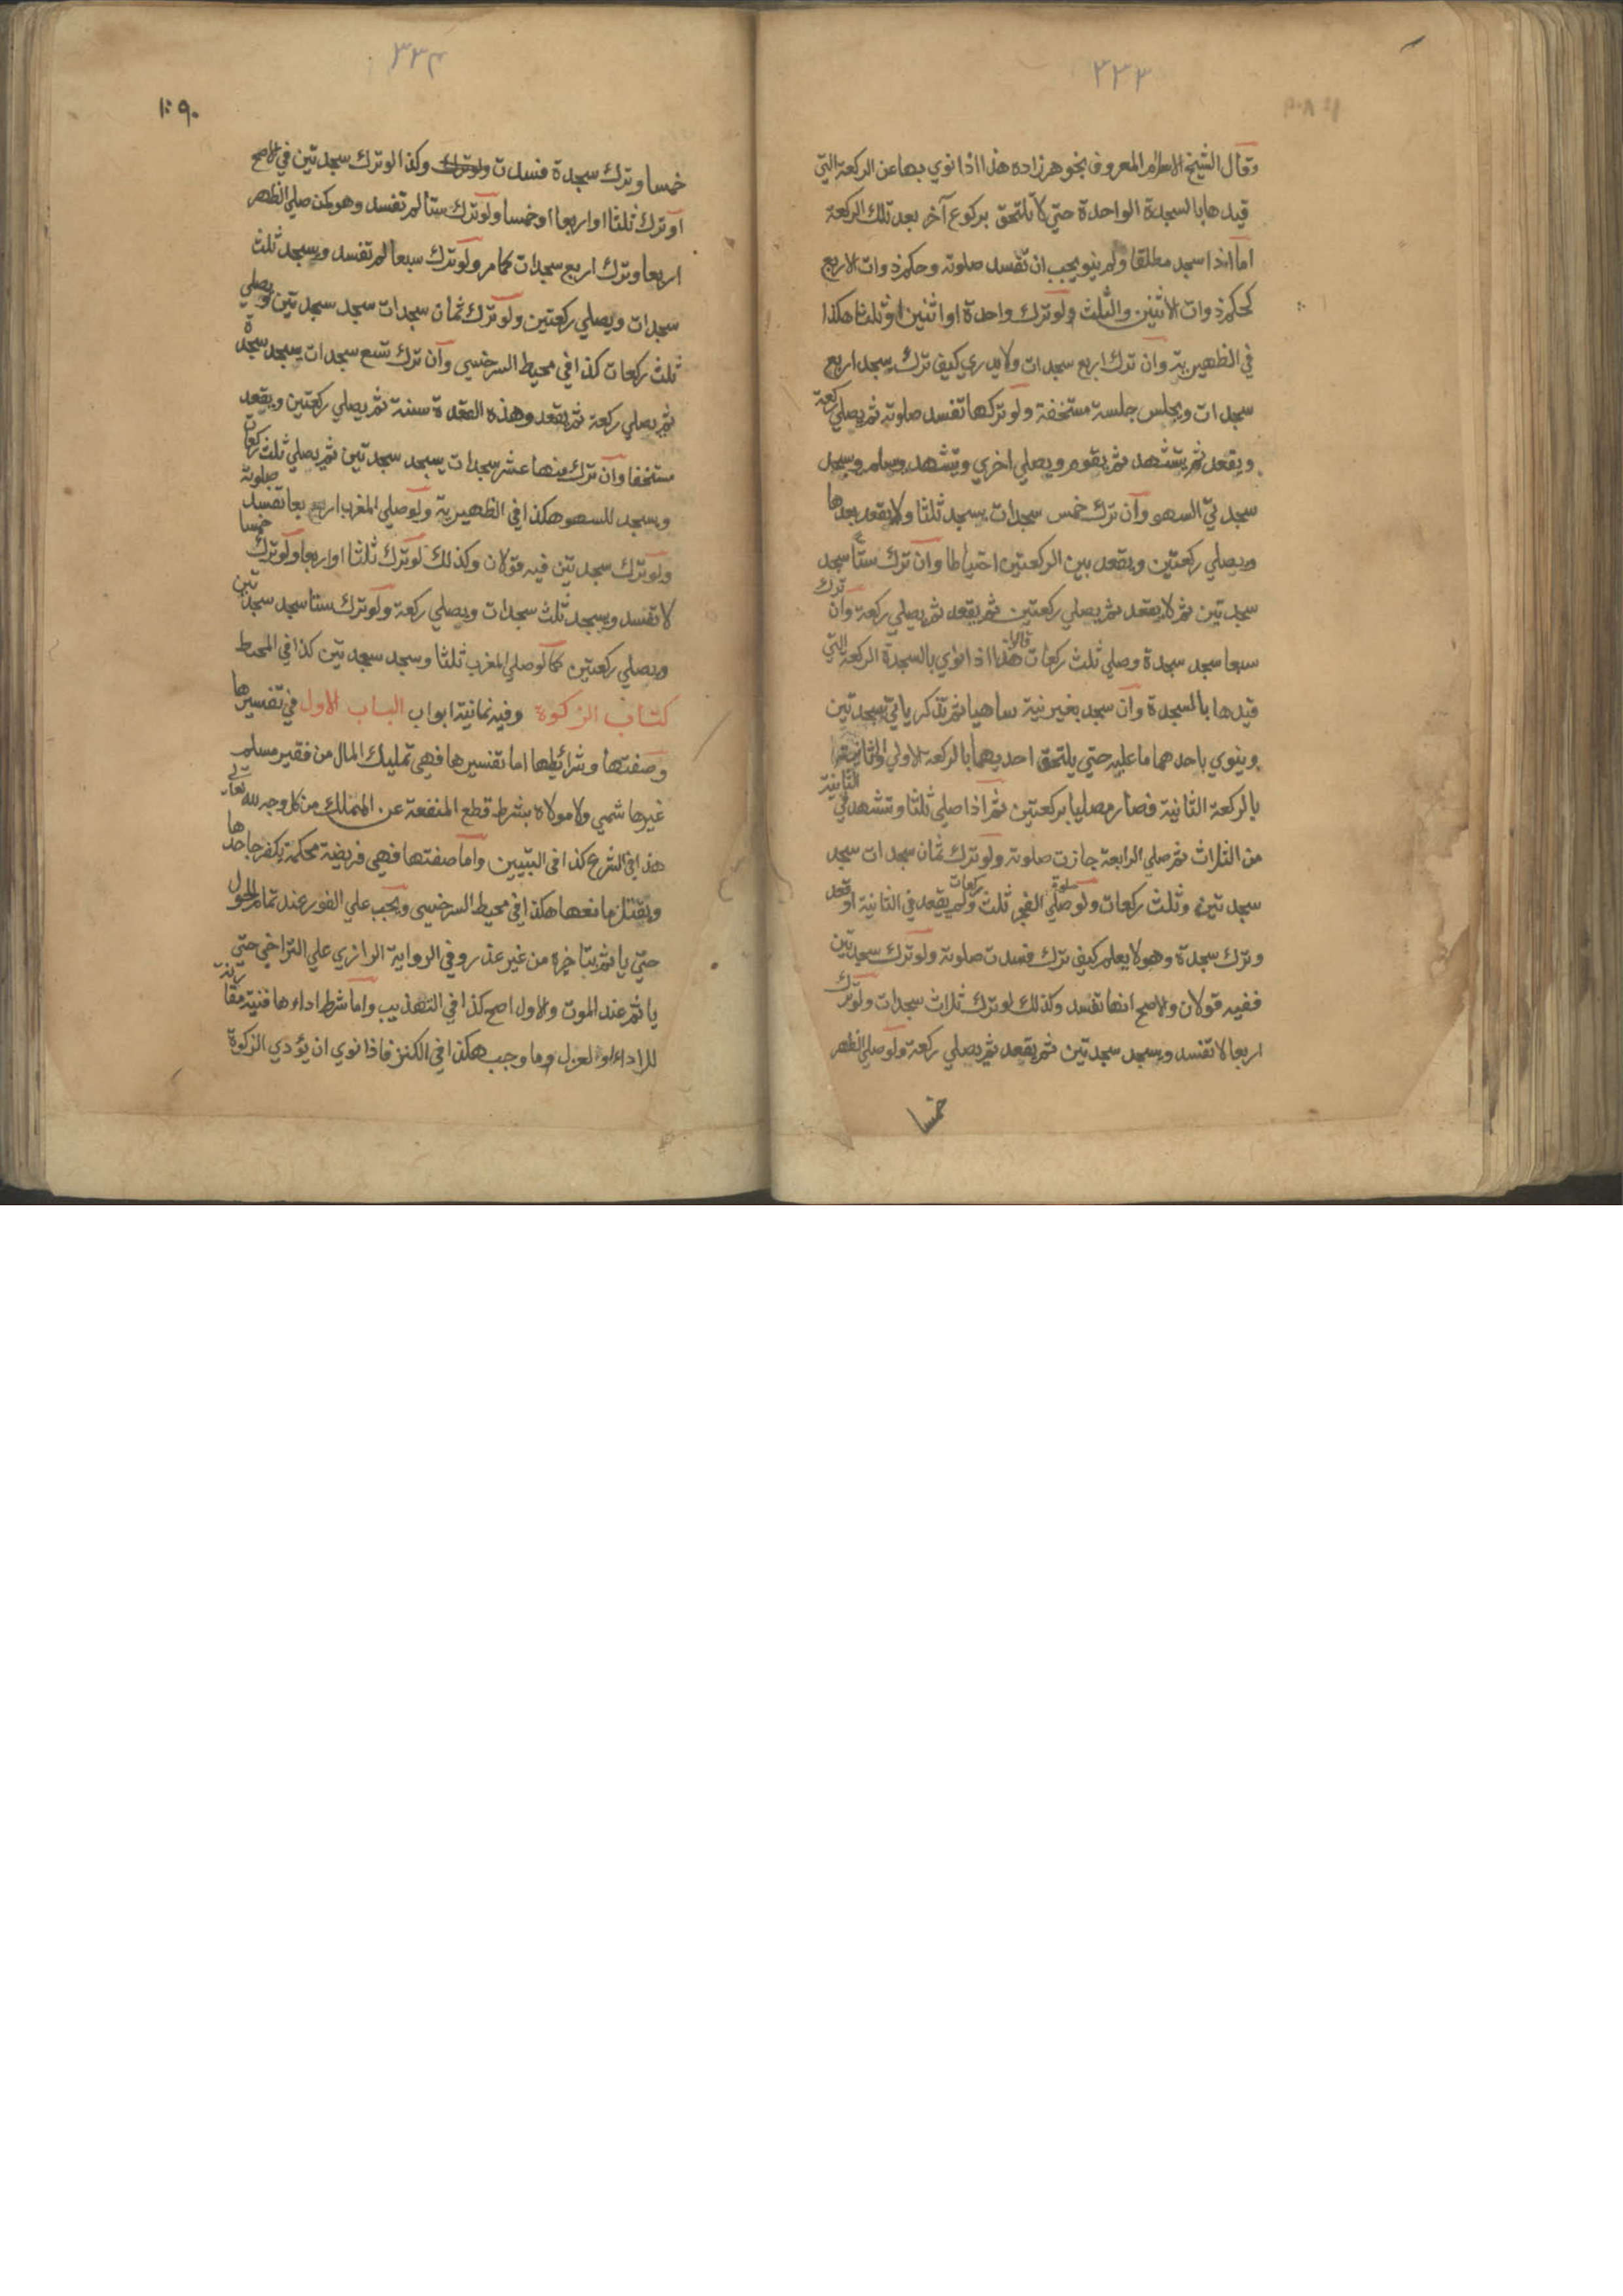 ٣٣٣
وقال الشيخ الامام المعروف بخوهرزاده هذا اذا نوي بها عن الركعة التي
قيدها بالسجدة الواحدة حتي لا تلتحق بركوع آخر بعد تلك الركعة
اما اذا سجد مطلقا ولم ينو يجب ان تفسد صلوته وحكم ذوات الاربع
كحكم ذوات الاثنين والثلث ولو ترك واحدة او اثنين او ثلثا هكذا
في الظهيرية وان ترك اربع سجدات ولا يدري كيف ترك يسجد اربع
سجدات ويجلس جلسة مستخفة ولو تركها تفسد صلوته ثم يصلي ركعة
ويقعد ثم يتشهد ثم يقوم ويصلي اخري ويتشهد ويسلم ويسجد
سجدتي السهو وان ترك خمس سجدات يسجد ثلثا ولا يقعد بعدها
ويصلي ركعتين ويقعد بين الركعتين احتياطا وان ترك ستا سجد
سجدتين ثم لا يقعد ثم يصلي ركعتين ثم يقعد ثم يصلي ركعة وان ترك
سبعا سجد سجدة وصلي ثلث ركعات قالوا هذا اذا نوي بالسجدة الركعة التي
قيدها بالسجدة وان سجد بغير نية ساهيا ثم تذكر ياتي بسجدتين
وينوي باحدهما ما عليه حتي يلتحق احديهما بالركعة الاولي والثانية
بالركعة الثانية فصار مصليا بركعتين ثم اذا صلي ثلثا وتشهد في الثانية
من الثلاث ثم صلي الرابعة جازت صلوته ولو ترك ثمان سجدات سجد
سجدتين وثلث ركعات ولو صلي صلوة الفجر ثلث ركعات ولم يقعد في الثانية او قعد
وترك سجدة وهو لا يعلم كيف ترك فسدت صلوته ولو ترك سجدتين
ففيه قولان والاصح انها تفسد وكذلك لو ترك ثلاث سجدات ولو ترك
اربعا لا تفسد ويسجد سجدتين ثم يقعد ثم يصلي ركعة ولو صلي الظهر
خمسا
٣٣٤
خمسا وترك سجدة فسدت ولو ترك وكذا لو ترك سجدتين في الاصح
او ترك ثلثا او اربعا او خمسا ولو ترك ستا لم تفسد وهو كمن صلي الظهر
اربعا وترك اربع سجدات كما مر ولو ترك سبعا لم تفسد ويسجد ثلث
سجدات ويصلي ركعتين ولو ترك ثمان سجدات سجد سجدتين ويصلي
ثلث ركعات كذا في محيط السرخسي وان ترك تسع سجدات يسجد سجدة
ثم يصلي ركعة ثم يقعد وهذه القعدة سنة ثم يصلي ركعتين ويقعد
مستخفا وان ترك منها عشر سجدات يسجد سجدتين ثم يصلي ثلث ركعات
ويسجد للسهو هكذا في الظهيرية ولو صلي المغرب اربعا تفسد صلوته
ولو ترك سجدتين فيه قولان وكذلك لو ترك ثلثا او اربعا ولو ترك خمسا
لا تفسد ويسجد ثلث سجدات ويصلي ركعة ولو ترك ستا سجد سجدتين
ويصلي ركعتين كما لو صلي المغرب ثلثا وسجد سجدتين كذا في المحيط
كتاب الزكوة وفيه ثمانية ابواب الباب الاول في تفسيرها
وصفتها وشرائطها اما تفسيرها فهي تمليك المال من فقير مسلم
غير هاشمي ولا مولاه بشرط قطع المنفعة عن المملك من كل وجه لله تعالي
هذا في الشرع كذا في التبيين واما صفتها فهي فريضة محكمة يكفر جاحدها
ويقتل مانعها هكذا في محيط السرخسي ويجب علي الفور عند تمام الحول
حتي ياثم بتاخيره من غير عذر وفي الرواية الرازي علي التراخي حتي
ياثم عند الموت والاول اصح كذا في التهذيب واما شرط اداءها فنية مقارنة
للاداء او لعزل وما وجب هكذا في الكنز فاذا نوي ان يؤدي الزكوة